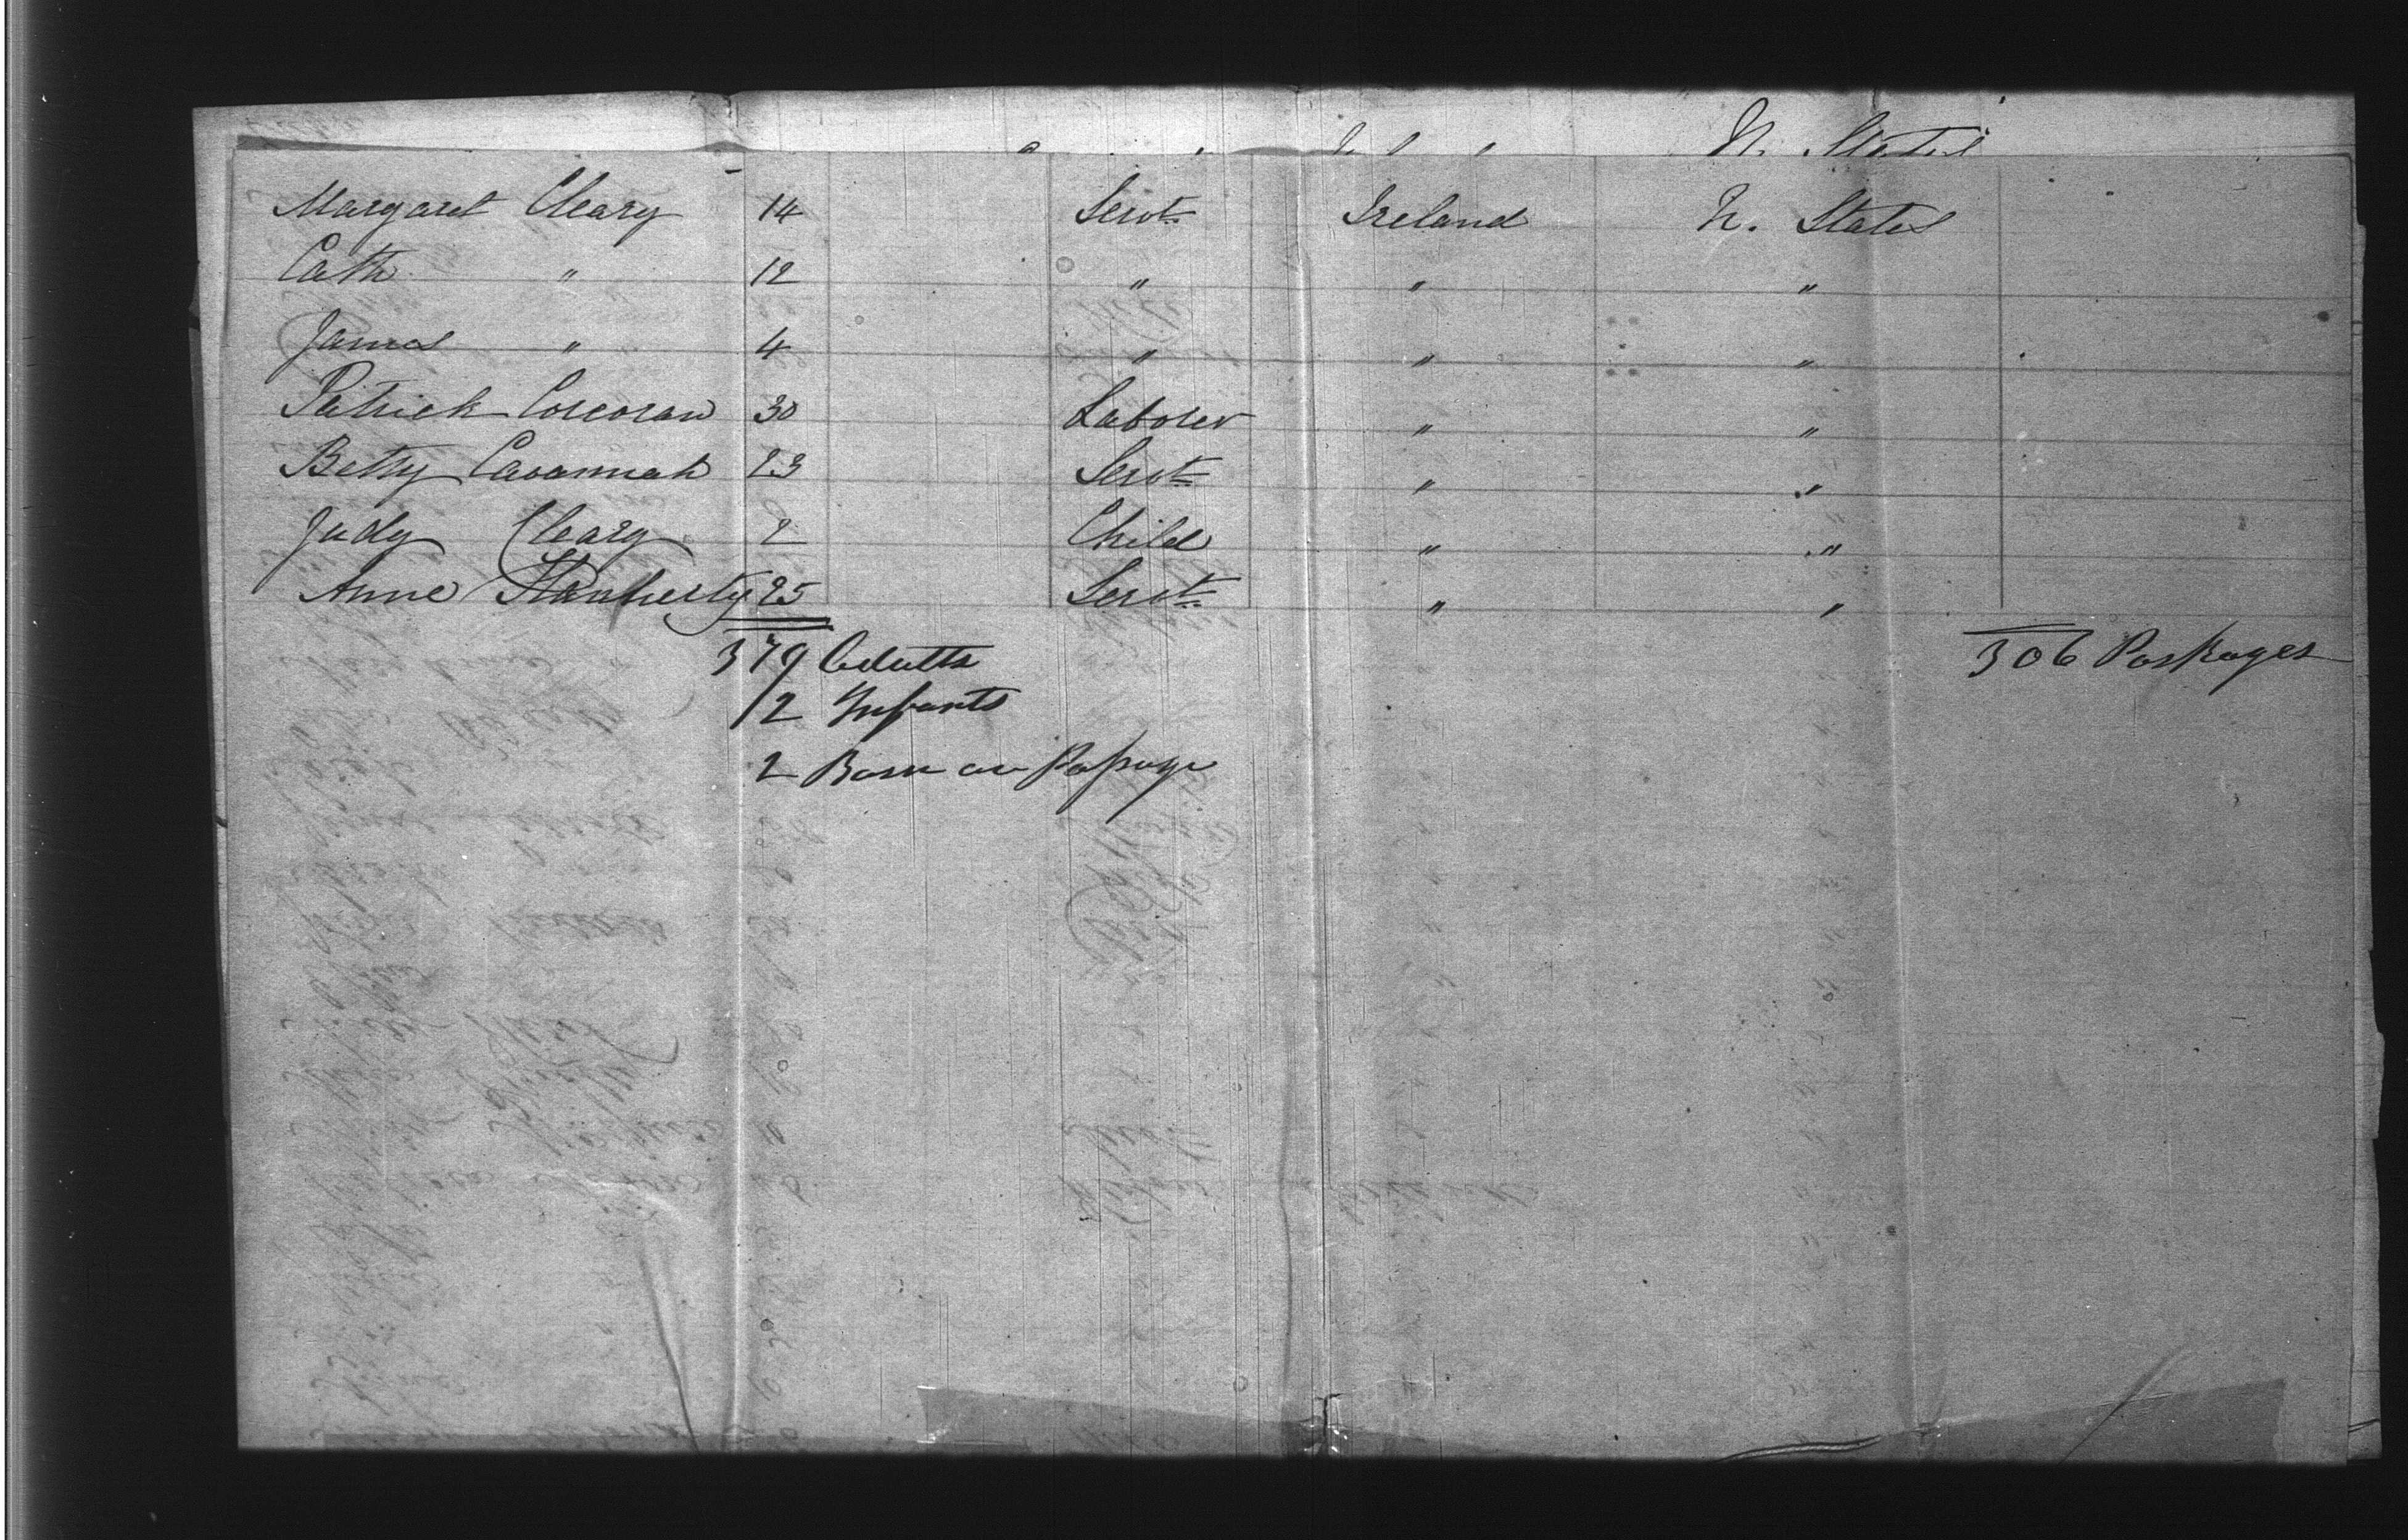 U. States
Margaret Cleary 14 Servt. Ireland U. States
Cath " 12 " " "
James " 4 " " "
Patrick Corcoran 30 Laborer " "
Betty Cavannah 23 Servt. " "
Judy Cleary 2 Child " "
Anne 25 Servt. " "
379 Adults 306 Packages
12 Infants
2 Born on Passage